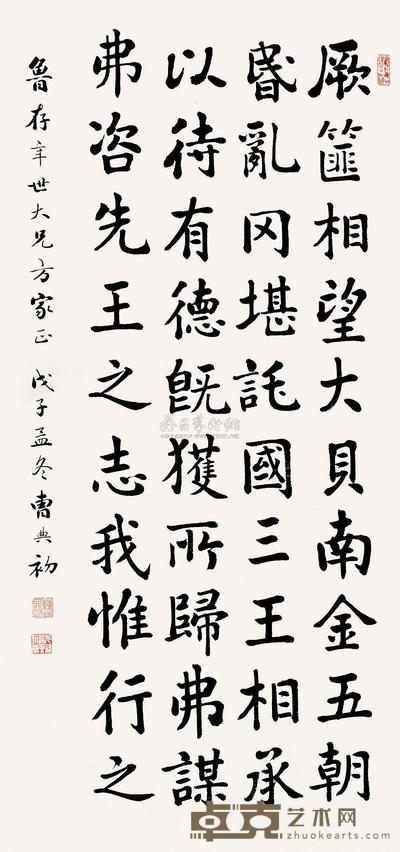 厥篚相望大貝南金五朝
昬亂罔堪託國三王相承
以待有德既獲所歸弗謀
弗咨先王之志我惟行之
魯存年世大兄方家正 戊子孟冬曹典初
卓克艺术网
zhuokearts.com